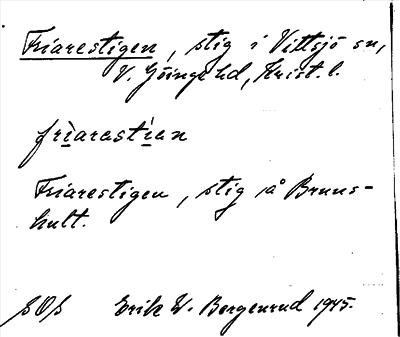 Friarestigen, stig i Vittsjö sn,
V. Göinge hd, Krist. l.
friarastien
Friarestigen, stig på Bruns-
hult.
SOS Erik W. Bergenrud 1945.